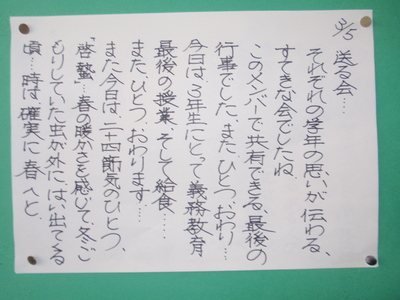 3/5
送る会‥‥
それぞれの学年の思いが伝わる、
すてきな会でしたね
このメンバーで共有できる、最後の
行事でした。また、ひとつ、おわり‥‥
今日は、3年生にとって義務教育
最後の授業、そして給食‥‥‥
また、ひとつ、おわります‥‥
また今日は、二十四節気のひとつ、
「啓蟄」‥‥春の暖かさを感じて、冬ご
もりしていた虫が外にはい出てくる
頃‥‥時は確実に春へと、